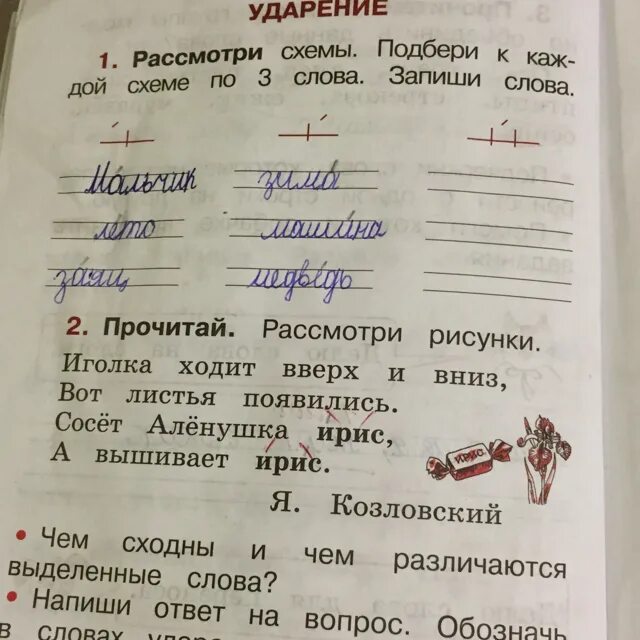 УДАРЕНИЕ
1. Рассмотри схемы. Подбери к каж-
дой схеме по 3 слова. Запиши слова.
Мальчик зима́
ле́то маши́на
за́яц медве́дь
2. Прочитай. Рассмотри рисунки.
Иголка ходит вверх и вниз,
Вот листья появились.
Сосёт Алёнушка ирис,
А вышивает ирис.
ИРИС
Я. Козловский
• Чем сходны и чем различаются
выделенные слова?
• Напиши ответ на вопрос. Обозначь
в словах